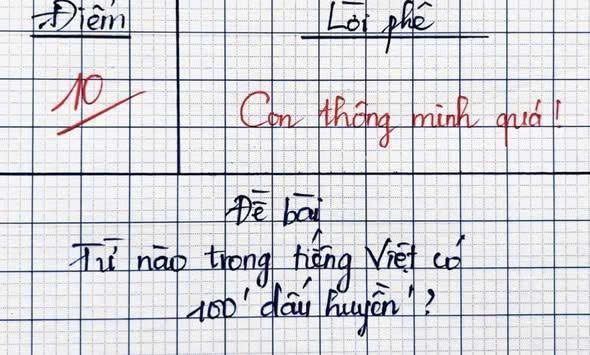 Điểm
Lời phê
10
Con thông minh quá!
Đề bài
Từ nào trong tiếng Việt có
100 'dấu huyền'?